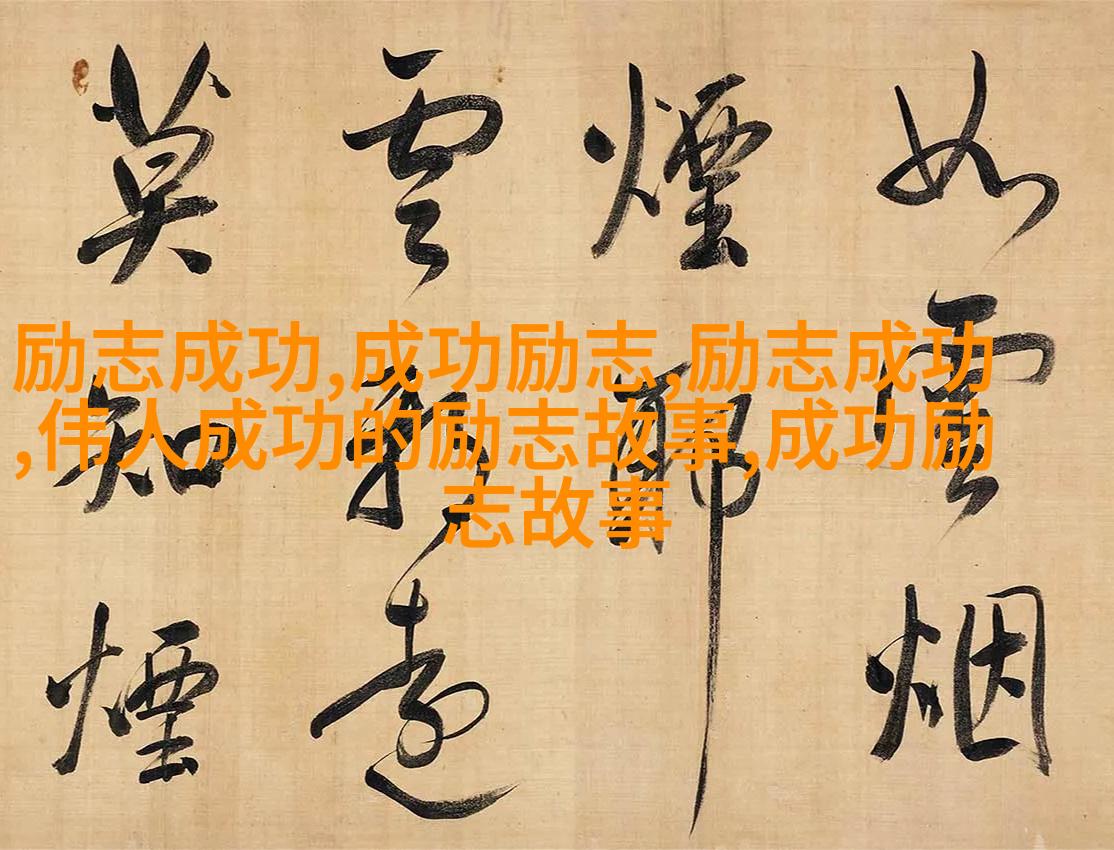 如雲烟
煙
雲遠
莫知煙
励志成功,成功励志,励志成功
,伟人成功的励志故事,成功励
志故事